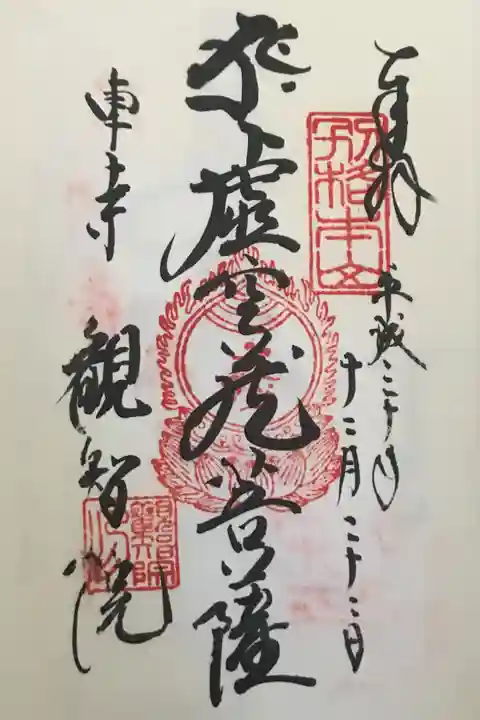 奉拝
平成三十年
十二月二十三日
虚空蔵菩薩
東寺
観智院
別格本山